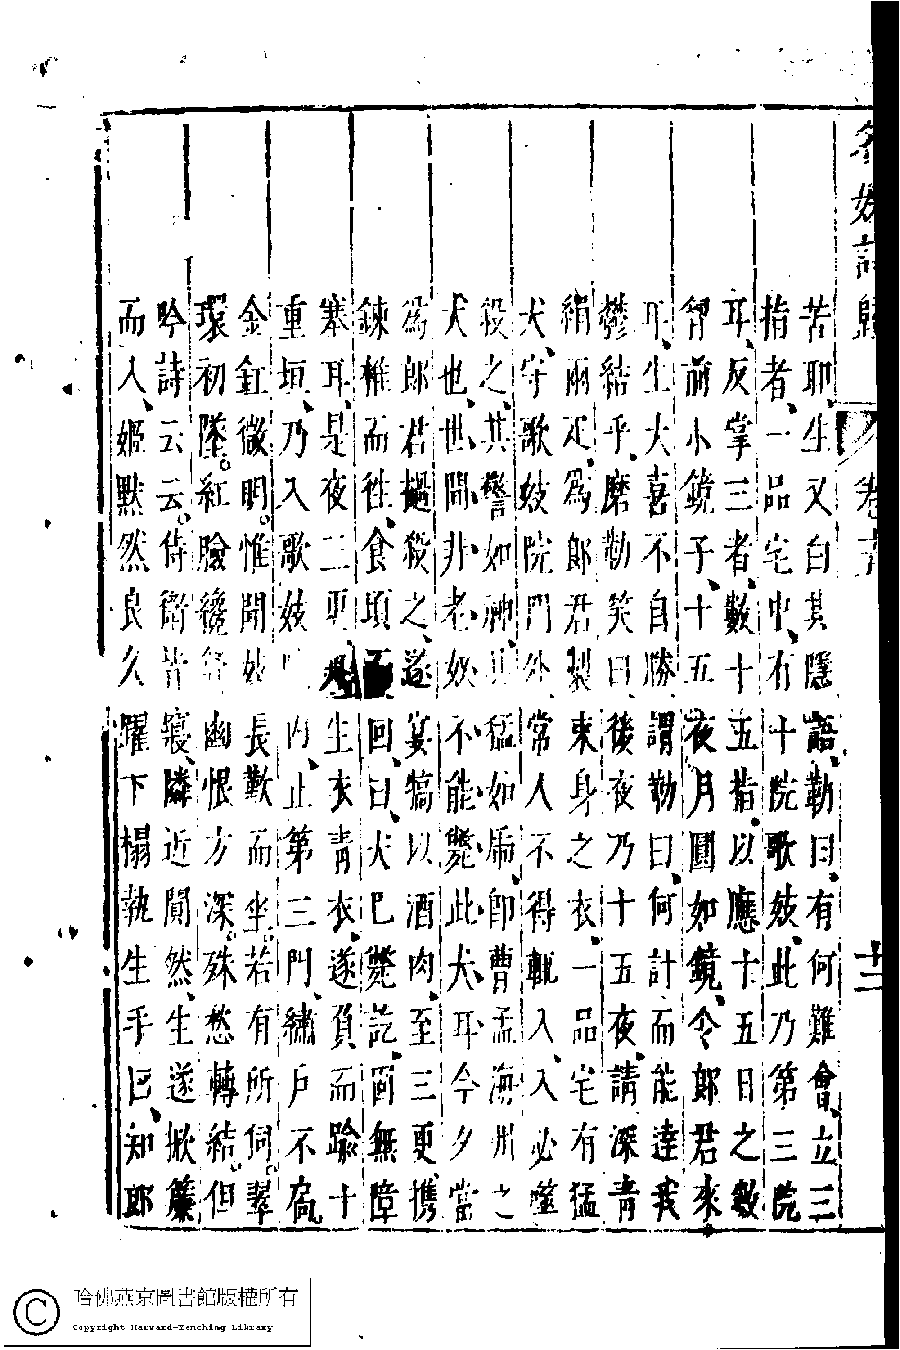 名妓記
卷
十二
苦耶、生又白其隱語、勒曰、有何難會、立三
指者、一品宅中、有十院歌妓、此乃第三院
耳、反掌三者、數十五指、以應十五日之數、
胷前小鏡子、十五夜月圓如鏡、令郎君來
耳、生大喜不自勝、謂勒曰、何計而能達我
鬱結乎、磨勒笑曰、後夜乃十五夜、請深青
絹兩疋、爲郎君製束身之衣、一品宅有猛
犬、守歌妓院門外、常人不得輒入、入必噬
殺之、其警如神、其猛如虎、卽曹孟海州之
犬也、世間非老奴不能斃此犬耳、今夕當
爲郎君撾殺之、遂宴犒以酒肉、至三更、攜
鍊椎而徃、食頃而回、曰、犬已斃訖、固無障
塞耳、是夜三更、生衣青衣、遂負而踰十
重垣、乃入歌妓內、止第三門、繡戶不扃、
金釭微明。惟聞妓長歎而坐。若有所伺。翠
環初墜。紅臉纔舒幽恨方深。殊愁轉結。但
吟詩云云。侍衛皆寢、隣近闃然、生遂掀簾
而入、姬默然良久躍下榻執生手曰、知郎
哈佛燕京圖書館版權所有
Copyright Harvard-Yenching Library